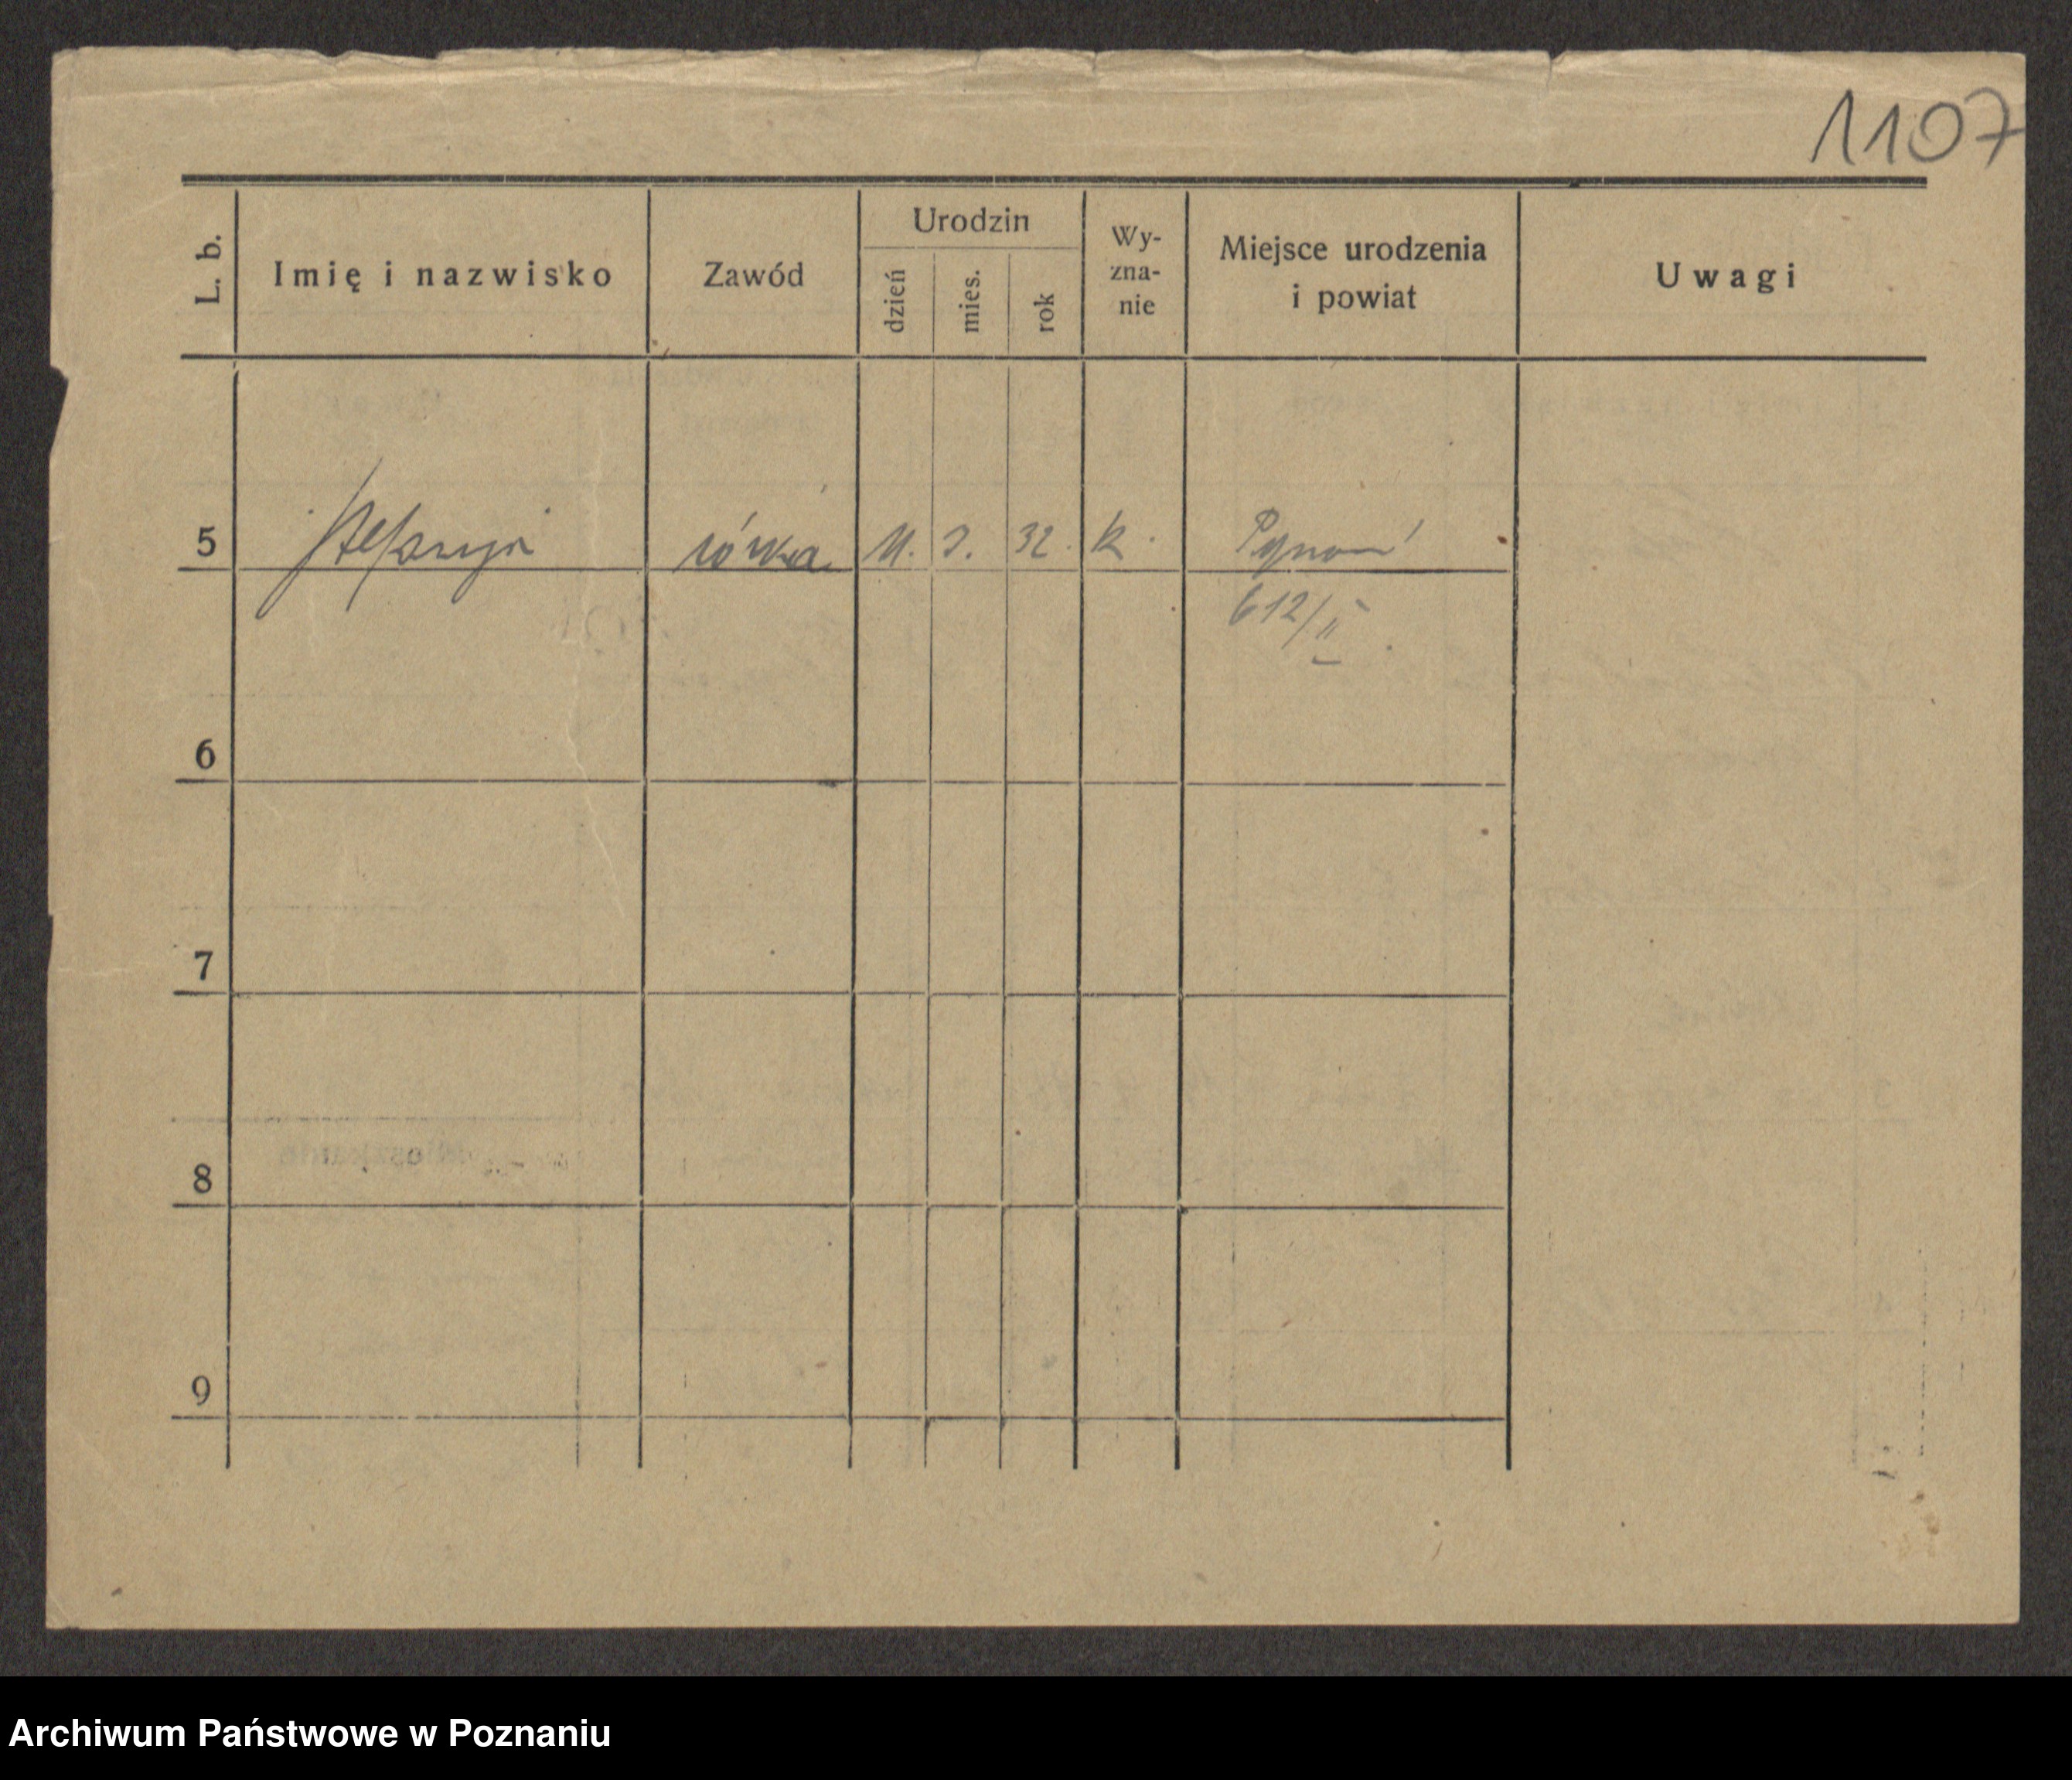 1107
L. b.
Imię i nazwisko
Zawód
Urodzin
dzień
mies.
rok
Wy-
zna-
nie
Miejsce urodzenia
i powiat
Uwagi
5 córka 11. 32. k.
612/II
6
7
8
9
Archiwum Państwowe w Poznaniu